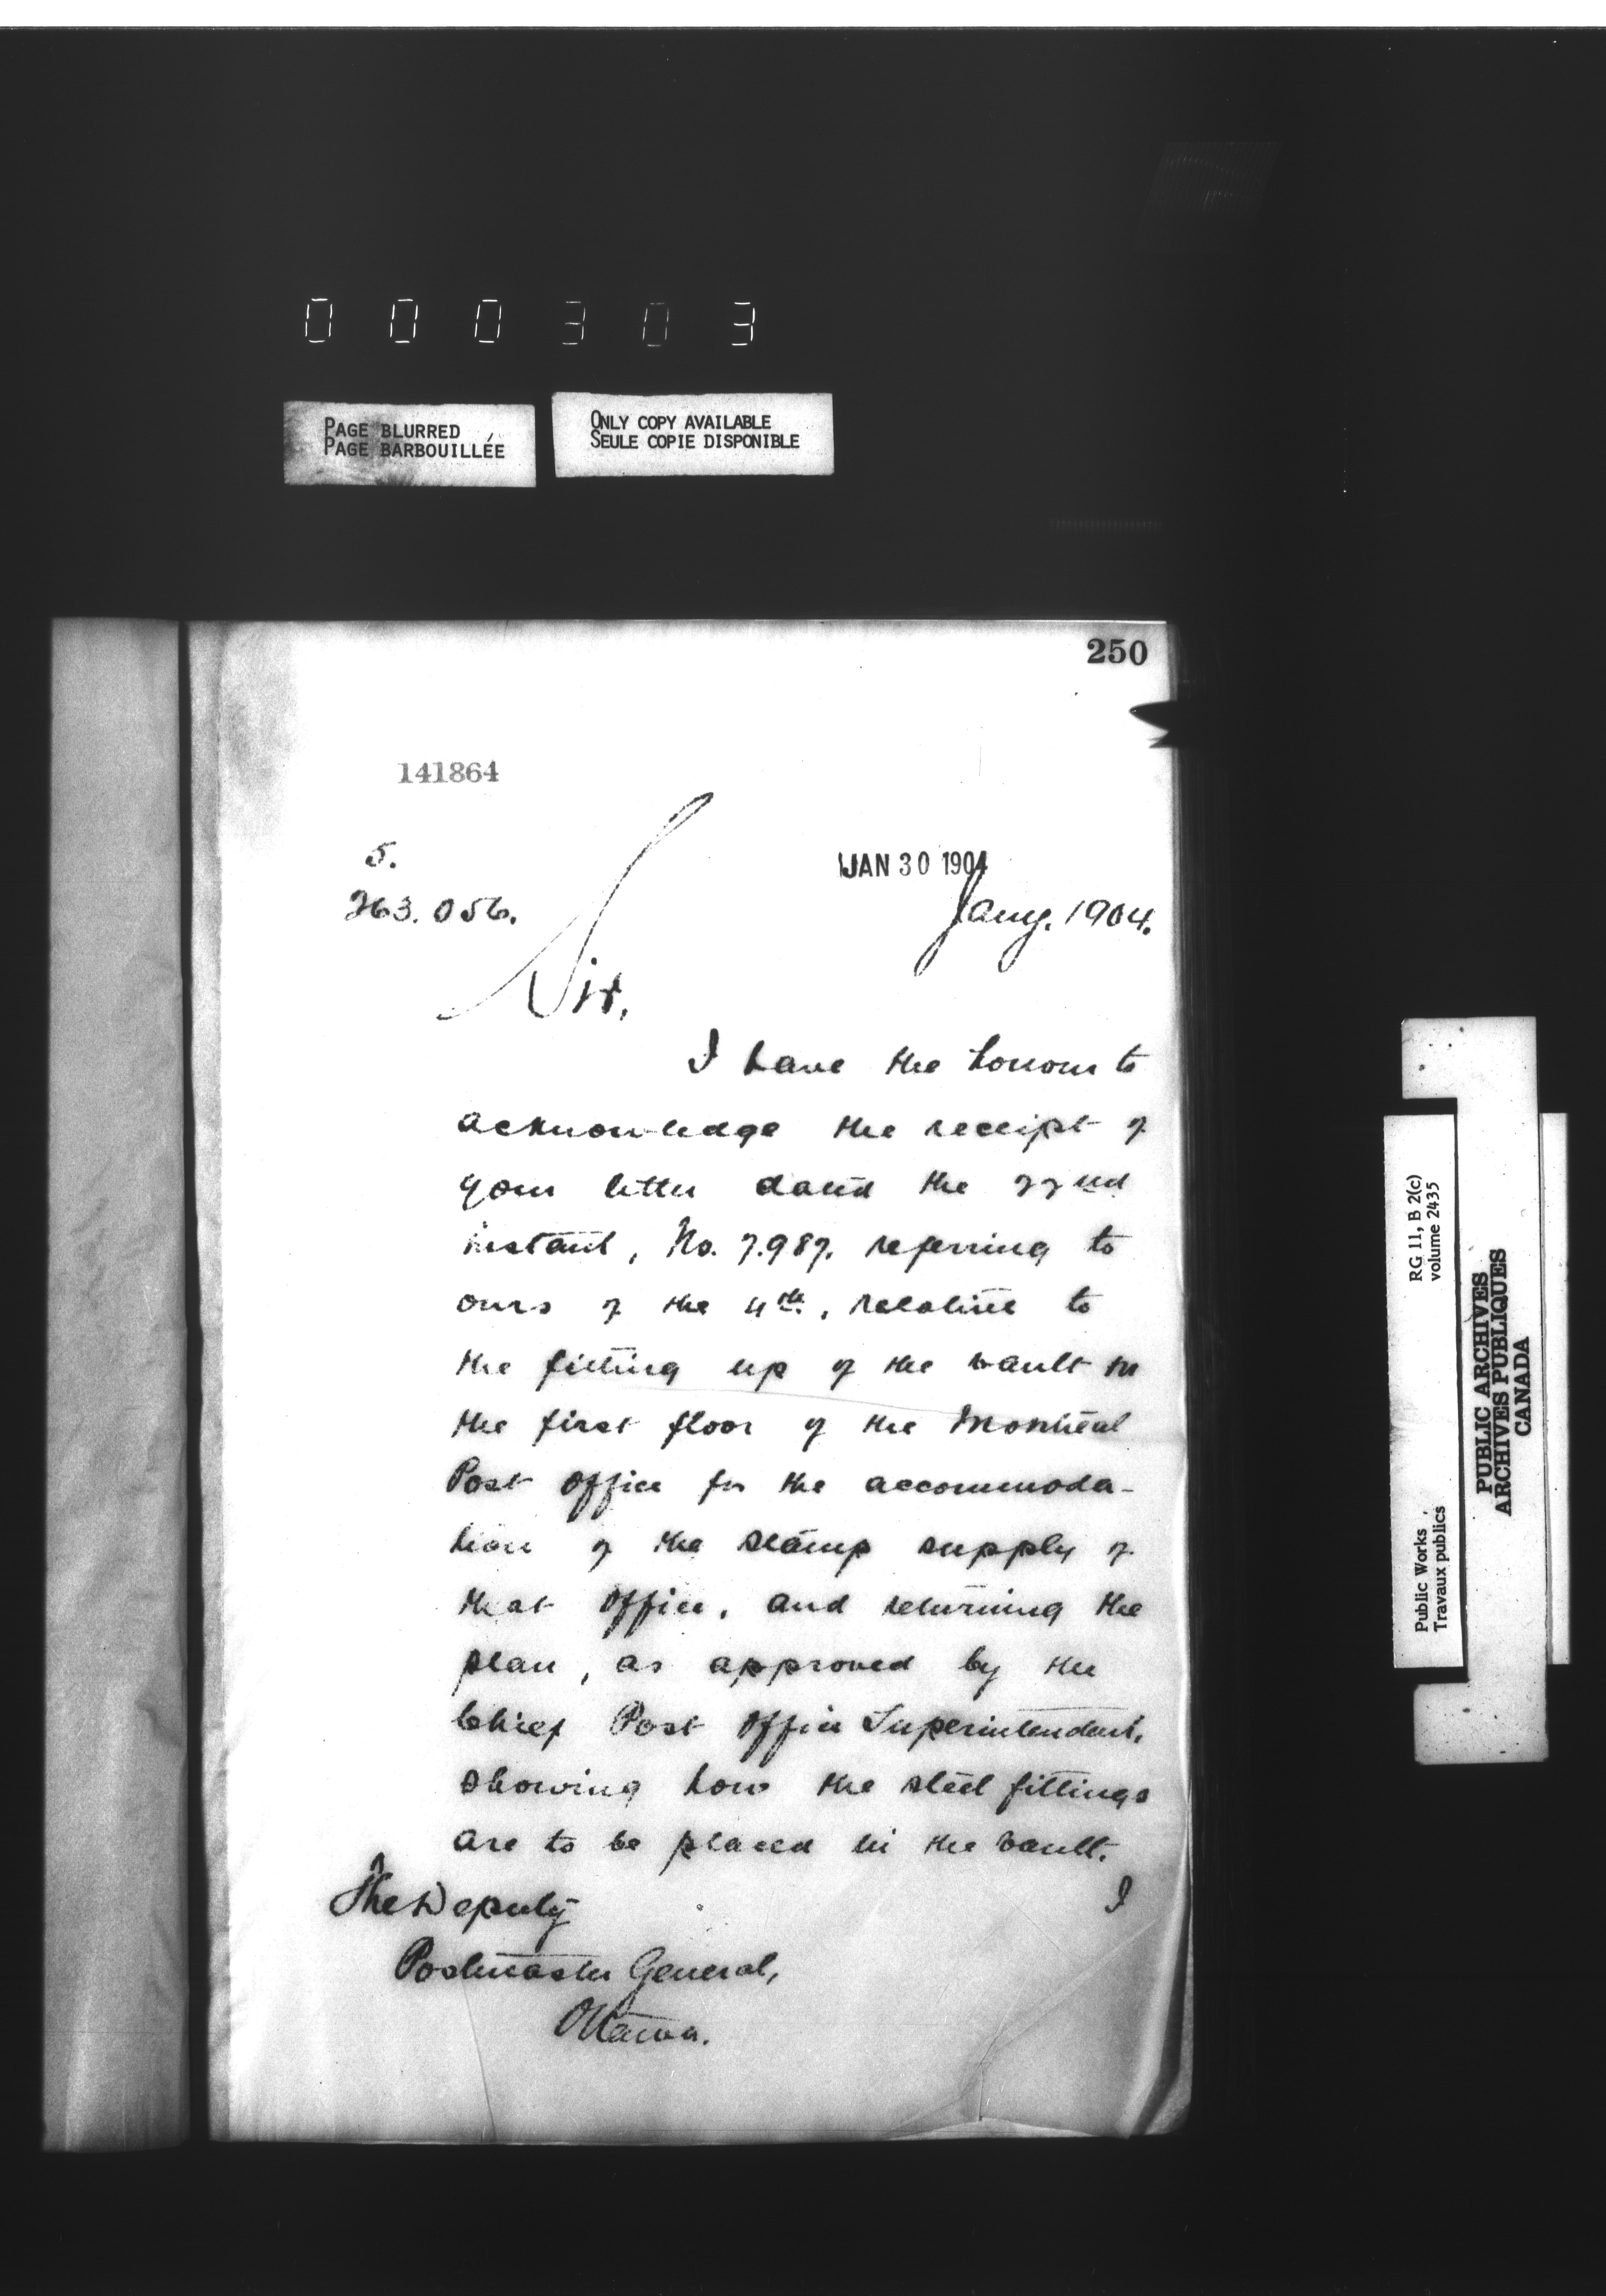 000303
PAGE BLURRED
PAGE BARBOUILLÉE
ONLY COPY AVAILABLE
SEULE COPIE DISPONIBLE
250
141864
5.
263.056.
JAN 30 1904
Jany. 1904.
Sir,
I have the honour to
acknowledge the receipt of
your letter dated the 22nd
instant, No. 7.987. referring to
ours of the 4th, relative to
the fitting up of the vault in
the first floor of the Montreal
Post Office for the accommoda-
tion of the stamp supply of
that Office, and returning the
plan, as approved by the
Chief Post Office Superintendent,
showing how the steel fittings
are to be placed in the vault.
I
The Deputy
Postmaster General,
Ottawa.
RG 11, B 2(c)
volume 2435
Public Works
Travaux publics
PUBLIC ARCHIVES
ARCHIVES PUBLIQUES
CANADA